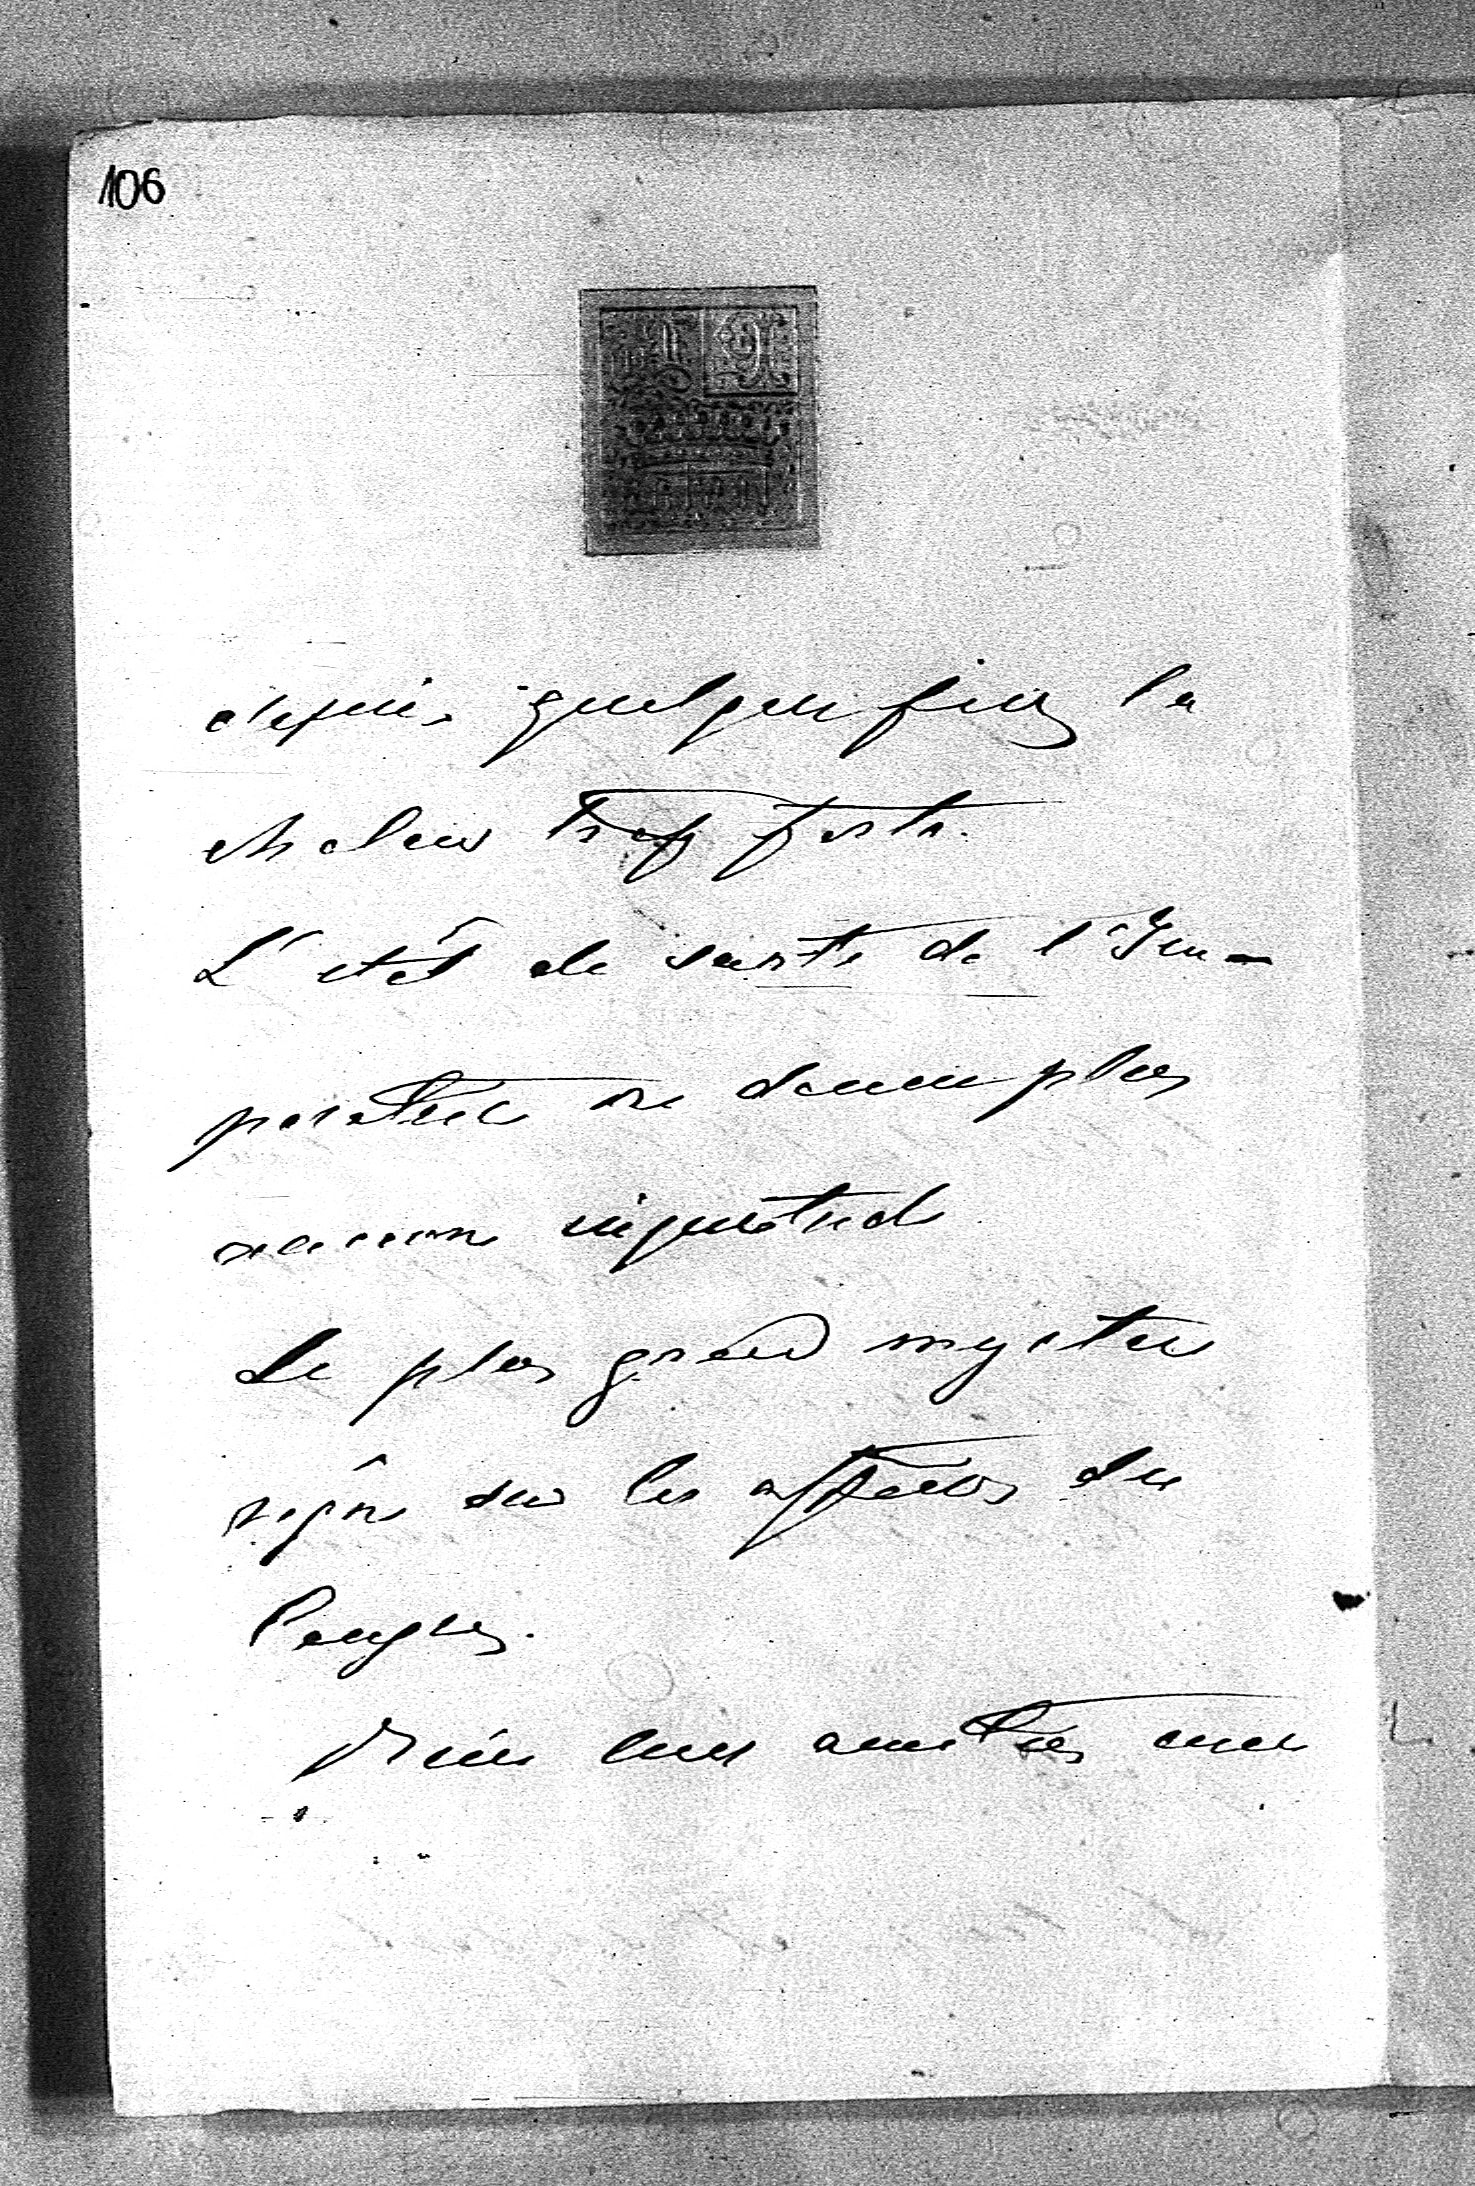 106
depuis quelques jours la
chaleur trop forte.
L'état de santé de l'Im-
peratrice ne donne plus
aucune inquiétude
Le plus grand mystère
règne sur les affaires du
Congrès.
Mille amitiés